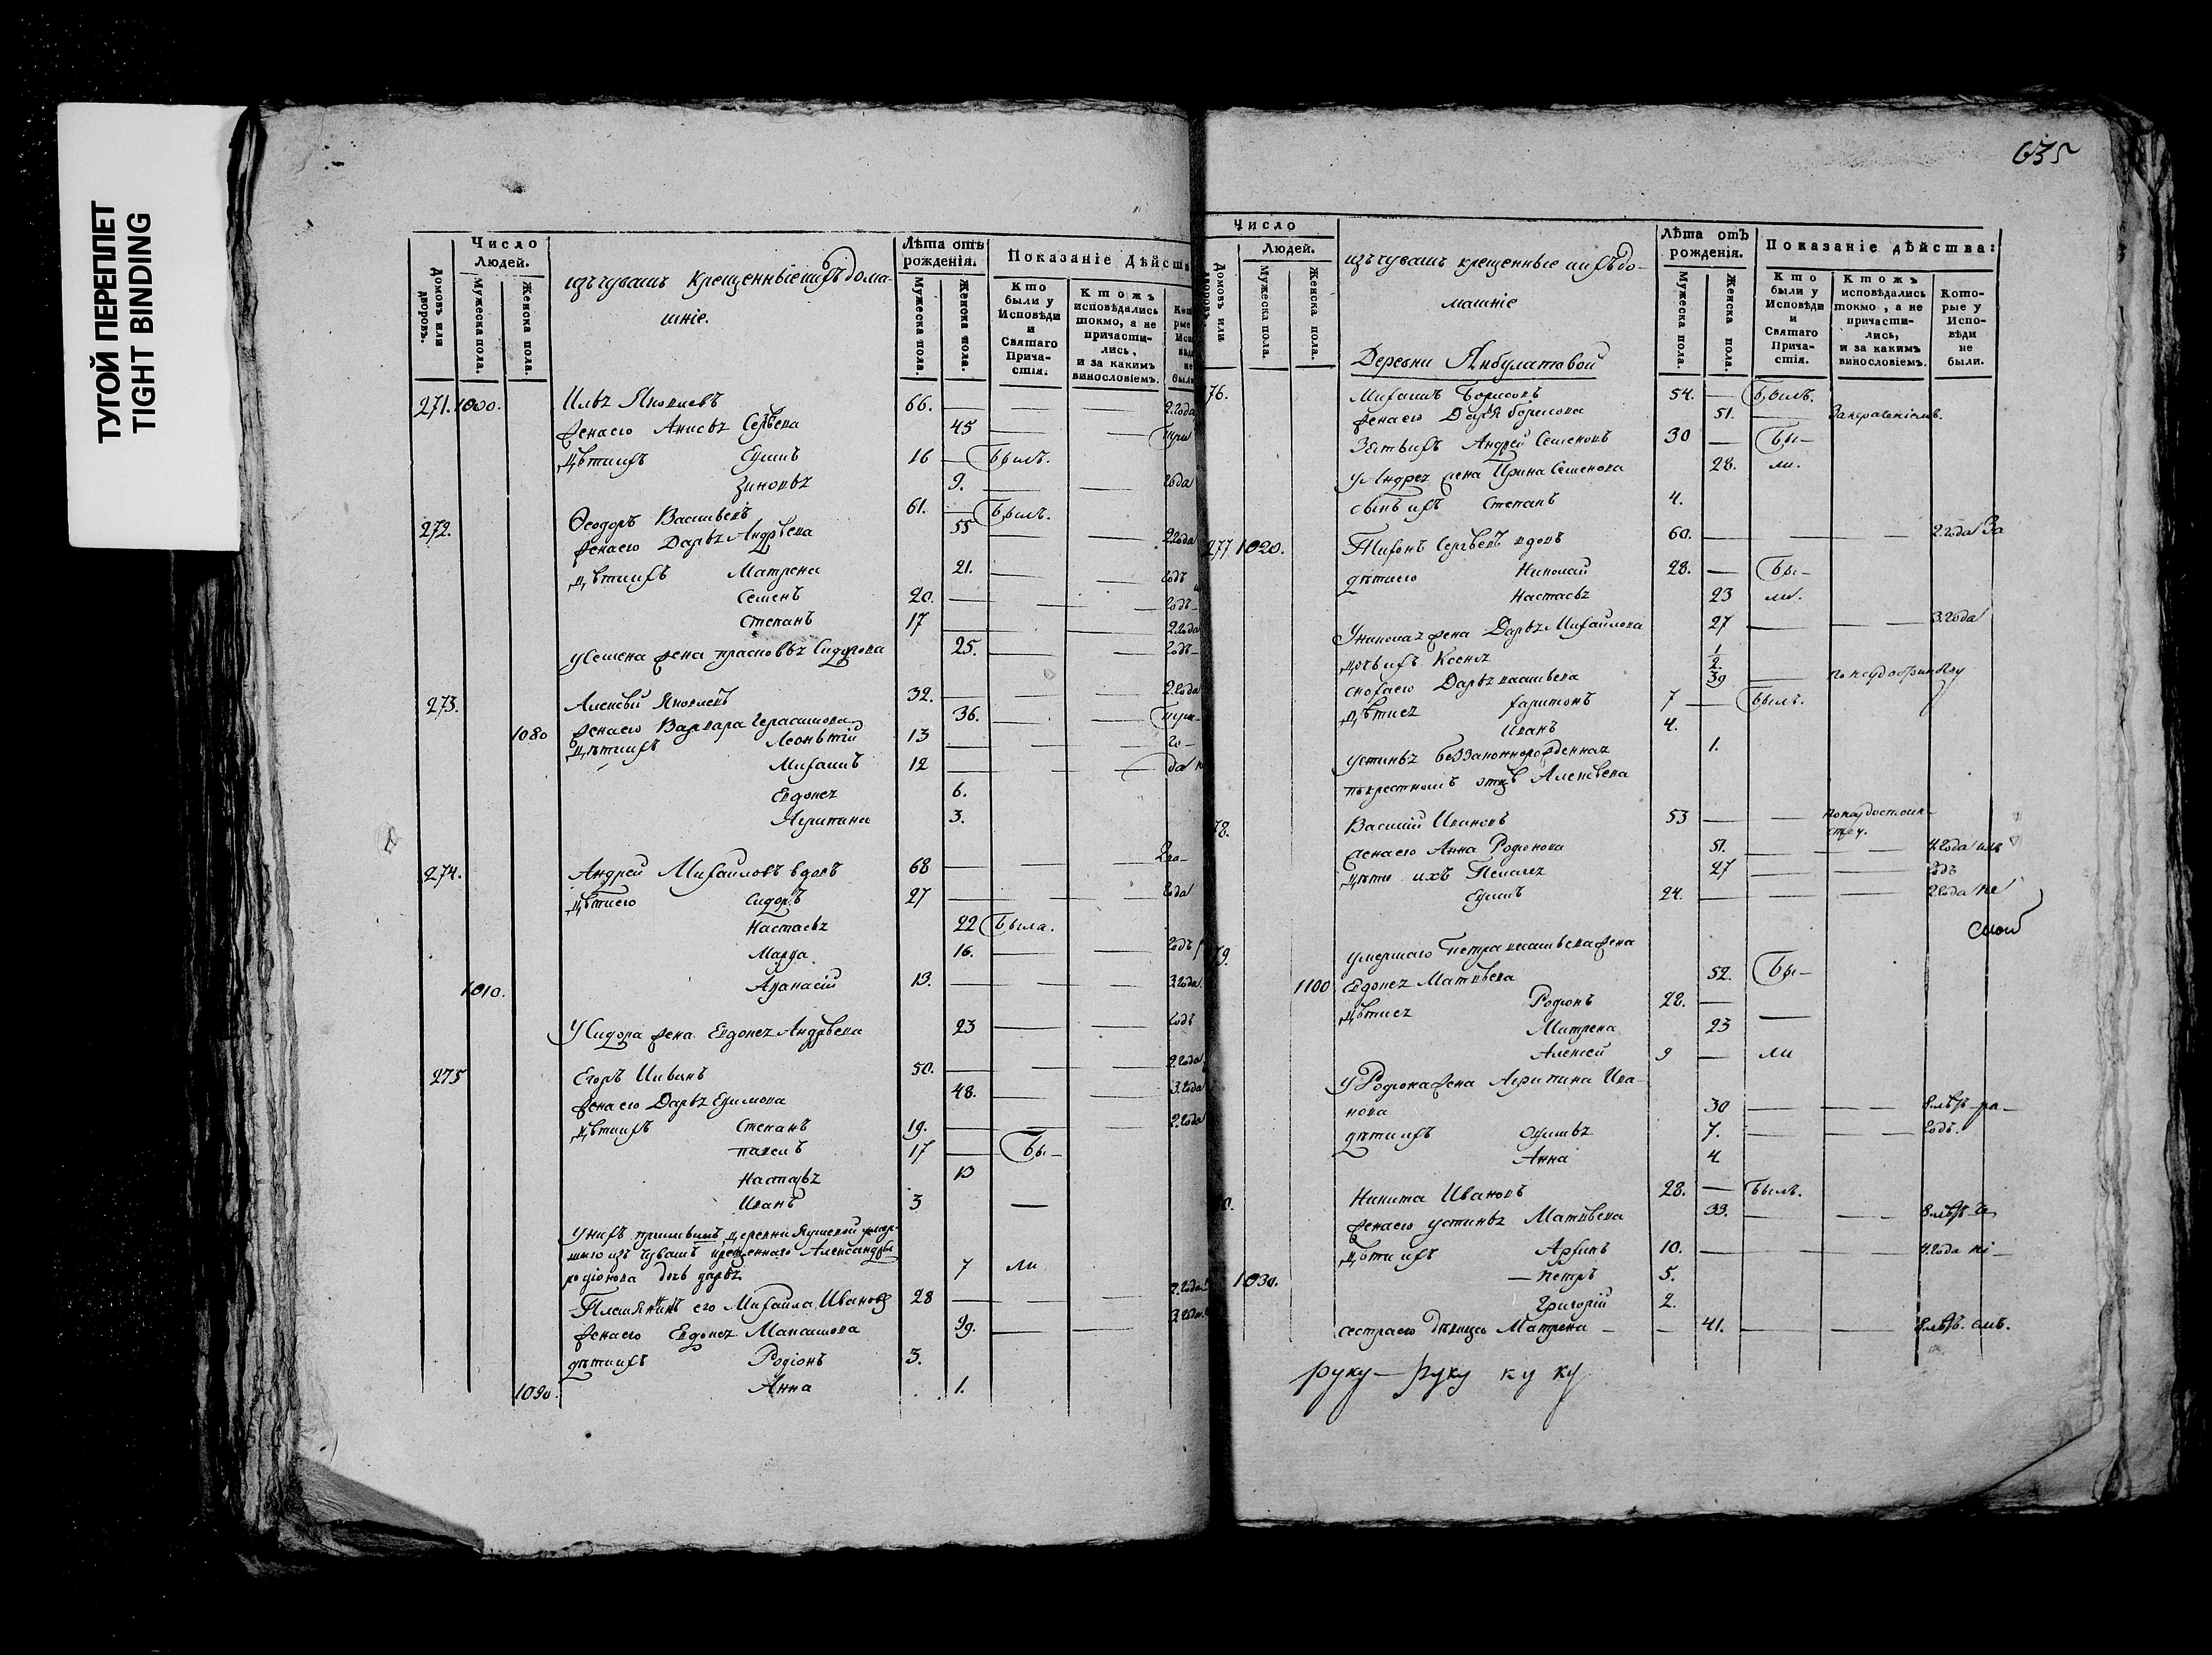 ТУГОЙ ПЕРЕПЛЕТ
TIGHT BINDING
Число
Людей.
Домовъ или дворовъ.
Мужеска пола.
Женска пола.
изъ чувашъ крещенные ихъ дома-
шніе.
Лѣта отъ
рожденія.
Мужеска пола.
Женска пола.
Показаніе Дѣйств
Кто
были у
Исповѣди
и
Святаго
Прича-
стія.
Ктожъ
исповѣдались
токмо, а не
причасти-
лись,
и за какимъ
винословіемъ.
271. 1000. Илья Яковлевъ 66. 2. года
жена его Анисья 45
дѣти ихъ 16 Былъ.
Зиновья 9. года
272. Ѳеодоръ Васильевъ 61. Былъ.
жена его Дарья Андрѣева 55 2. года
дѣти ихъ Матрена 21. годъ
Семенъ 20. годъ
Степанъ 17 2. года
у Семена жена Прасковья Сидорова 25. годъ
273. Алексѣй Яковлевъ 32. 2. года
жена его Варвара Герасимова 36.
1080 дѣти ихъ Леонътій 13 го-
Михаилъ 12 да
Евдокея 6.
Агрипина 3.
274. Андрей Михаиловъ вдовъ 68 2 го-
дѣти его Сидоръ 27 года
Настасья 22 Была.
Марѳа 16. годъ
1010. Аѳанасій 13. 3. года
У Сидора жена Евдокея Андрѣева 23 годъ
275 Егоръ 50. 2. года
жена его Дарья Ефимова 48. 3. года
дѣти ихъ Степанъ 19. 2. года
Павелъ 17 Бы-
Настасья 13
Иванъ 3
у нихъ деревни умер-
шаго изъ чувашъ крещеннаго Александры
родіонова дочь дарья 7 ли
Племянникъ его Михаила Ивановъ 28 2. года
жена его Евдокея 39. 3. года
дѣти ихъ Родіонъ 3.
1090. Анна 1.
635
Число
Людей.
Домовъ или дворовъ.
Мужеска пола.
Женска пола.
изъ чувашъ крещенные ихъ до-
машніе
Деревни Янбулатовой
Лѣта отъ
рожденія.
Мужеска пола.
Женска пола.
Показаніе дѣйства:
Кто
были у
Исповѣди
и
Святаго
Прича-
стія.
Ктожъ
исповѣдались
токмо, а не
причасти-
лись,
и за какимъ
винословіемъ.
Кото-
рые у
Испо-
вѣди
не
были.
76. Михаилъ Борисовъ 54. Былъ.
жена его Дарья Борисова 51.
Зять ихъ Андрей Семеновъ 30 Бы-
у Андрея жена Ирина Семенова 28. ли.
сынъ ихъ Степанъ 4.
277 1020. Тихонъ Сергѣевъ вдовъ 60. 2. года За
дѣти его Николай 28. Бы-
Настасья 23 ли.
У Николая жена Дарья Михайлова 27 3. года
дочь ихъ Ксенья 1/2.
сноха его Дарья Васильева 39
дѣти ея Харитонъ 7 Былъ.
Иванъ 4.
устинья беззаконнорожденная 1.
по крестномъ отцѣ Алексѣева
78. Василій Ивановъ 53
жена его Анна Родіонова 51. 4. года
дѣти ихъ Пелагея 27 годъ
Ефимъ 24. 2. года не
79. умершаго Петра Васильева жена
1100 Евдокея Матвѣева 52. Бы-
дѣти ея Родіонъ 22.
Матрена 23
Алексей 9 ли
У Родіона жена Агрипина Ива-
нова 30 8. лѣтъ
дѣти ихъ 7. годъ.
Анна 4
Никита Ивановъ 28. Былъ.
жена его устинья Матвѣева 33. 8. лѣтъ
дѣти ихъ Архипъ 10. 4. года
1030. Петръ 5.
Григорій 2.
сестра его дѣвица Матрена 41. 8. лѣтъ.
руку — руку ку ку